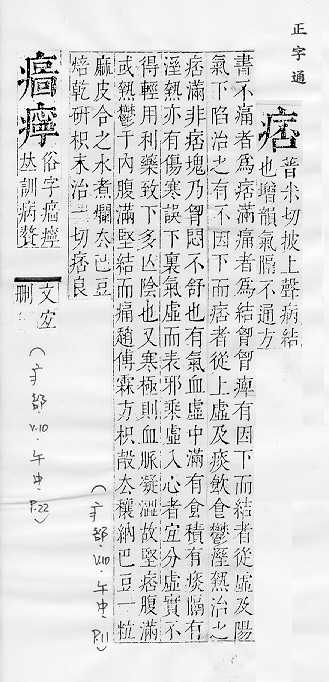 正字通
痞
普米切披上聲病結
也增韻氣隔不通方
書不痛者爲痞滿痛者爲結胷胷痺有因下而結者從虛及陽
氣下陷治之有不因下而痞者從土虛及痰飲食鬱溼熱治之
痞滿非痞塊乃胷悶不舒也有氣血虛中滿有食積有痰隔有
溼熱亦有傷寒誤下裏氣虛而表邪乘虛入心者宜分虛實不
得輕用利藥致下多亾陰也又寒極則血脈凝澀故堅痞腹滿
或熱鬱于內腹滿堅結而痛趙傅霖方枳殻去穰納巴豆一粒
麻皮合之水煮爛去巴豆
焙乾研枳末治一切痞良
(疒部.V.10.午中.P.11)
俗字
竝訓病贅
文宜
刪
(疒部.V.10.午中.P.22)